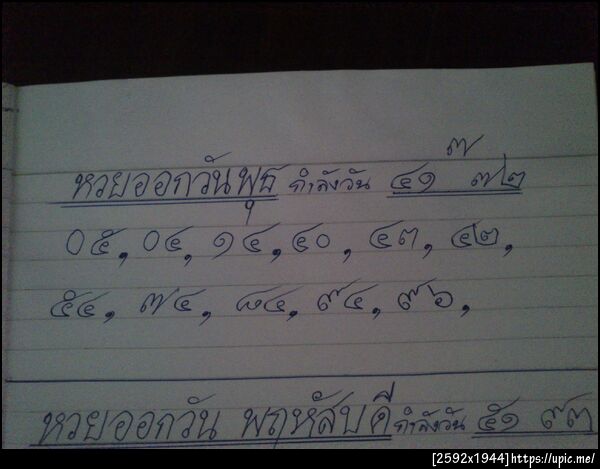 ๗
หวยออกวันพุธ กำลังวัน ๔๑ ๗๒
๐๕, ๐๔, ๑๔, ๔๐, ๔๓, ๔๒,
๕๔, ๗๔, ๘๔, ๙๔, ๙๖,
หวยออกวัน พฤหัสบดี กำลังวัน ๕๑ ๙๓
[2592x1944]https://upic.me/